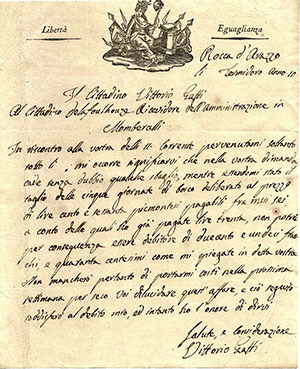 Libertà Eguaglianza
Rocca d'Arazzo
li Termidoro Anno 10
Il Cittadino Vittorio Gatti
Al Cittadino Ricevidore dell'Amministrazione in
Momberselli
In riscontro alla vostra delli 11 Corrente pervenutami soltanto
sotto li mi occorre significarvi che nella vostra dimana,
cade senza dubbio qualche sbaglio, mentre essendomi stato il
taglio delle cinque giornate di bosco deliberato al prezzo
di lire cento e settanta piemontesi pagabili fra mesi sei
a conto delle quali ho già pagate lire trenta, non potrei
per conseguenza essere debitore di ducento e undeci fran-
chi, e quaranta centesimi come mi spiegate in detta vostra
Non mancherò pertanto di portarmi costì nella prossima
settimana per seco voi dilucidare quest'affare, e ciò seguito
soddisferò al debito mio, ed intanto ho l'onore di dirvi
Salute, e considerazione
Vittorio Gatti